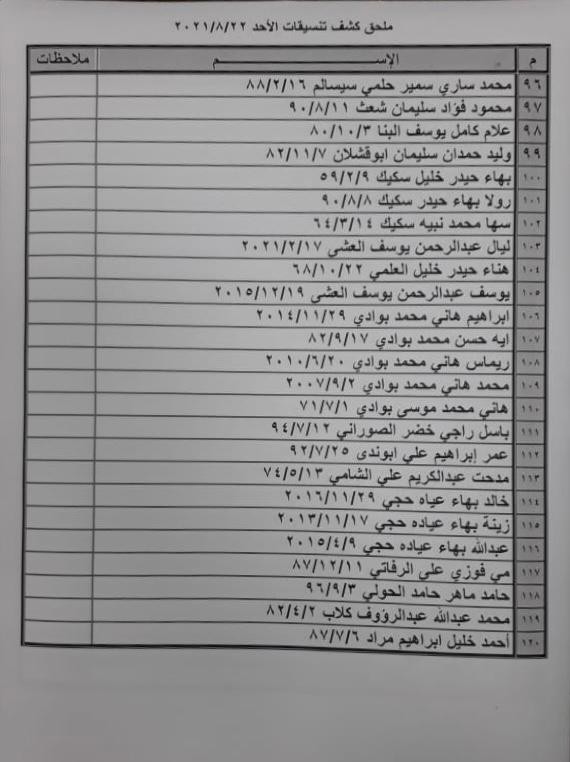 ملحق كشف تنسيقات الأحد ٢٠٢١/٨/٢٢
م الإســـــــــم ملاحظات
٩٦ محمد ساري سمير حلمي سيسالم ٨٨/٢/١٦
٩٧ محمود فؤاد سليمان شعث ٩٠/٨/١١
٩٨ علام كامل يوسف البنا ٨٠/١٠/٣
٩٩ وليد حمدان سليمان ابوقشلان ٨٢/١١/٧
١٠٠ بهاء حيدر خليل سكيك ٥٩/٢/٩
١٠١ رولا بهاء حيدر سكيك ٩٠/٨/٨
١٠٢ سها محمد نبيه سكيك ٦٤/٣/١٤
١٠٣ ليال عبدالرحمن يوسف العشي ٢٠٢١/٢/١٧
١٠٤ هناء حيدر خليل العلمي ٦٨/١٠/٢٢
١٠٥ يوسف عبدالرحمن يوسف العشي ٢٠١٥/١٢/١٩
١٠٦ ابراهيم هاني محمد بوادي ٢٠١٤/١١/٢٩
١٠٧ ايه حسن محمد بوادي ٨٢/٩/١٧
١٠٨ ريماس هاني محمد بوادي ٢٠١٠/٦/٢٠
١٠٩ محمد هاني محمد بوادي ٢٠٠٧/٩/٢
١١٠ هاني محمد موسى بوادي ٧١/٧/١
١١١ باسل راجي خضر الصوراني ٩٤/٧/١٢
١١٢ عمر إبراهيم علي ابوندى ٩٢/٧/٢٥
١١٣ مدحت عبدالكريم علي الشامي ٧٤/٥/١٣
١١٤ خالد بهاء عياه حجي ٢٠١٦/١١/٢٩
١١٥ زينة بهاء عياده حجي ٢٠١٣/١١/١٧
١١٦ عبدالله بهاء عياده حجي ٢٠١٥/٤/٩
١١٧ مي فوزي علي الرفاتي ٨٧/١٢/١١
١١٨ حامد ماهر حامد الحولي ٩٦/٩/٣
١١٩ محمد عبدالله عبدالرؤوف كلاب ٨٢/٤/٢
١٢٠ أحمد خليل ابراهيم مراد ٨٧/٧/٦